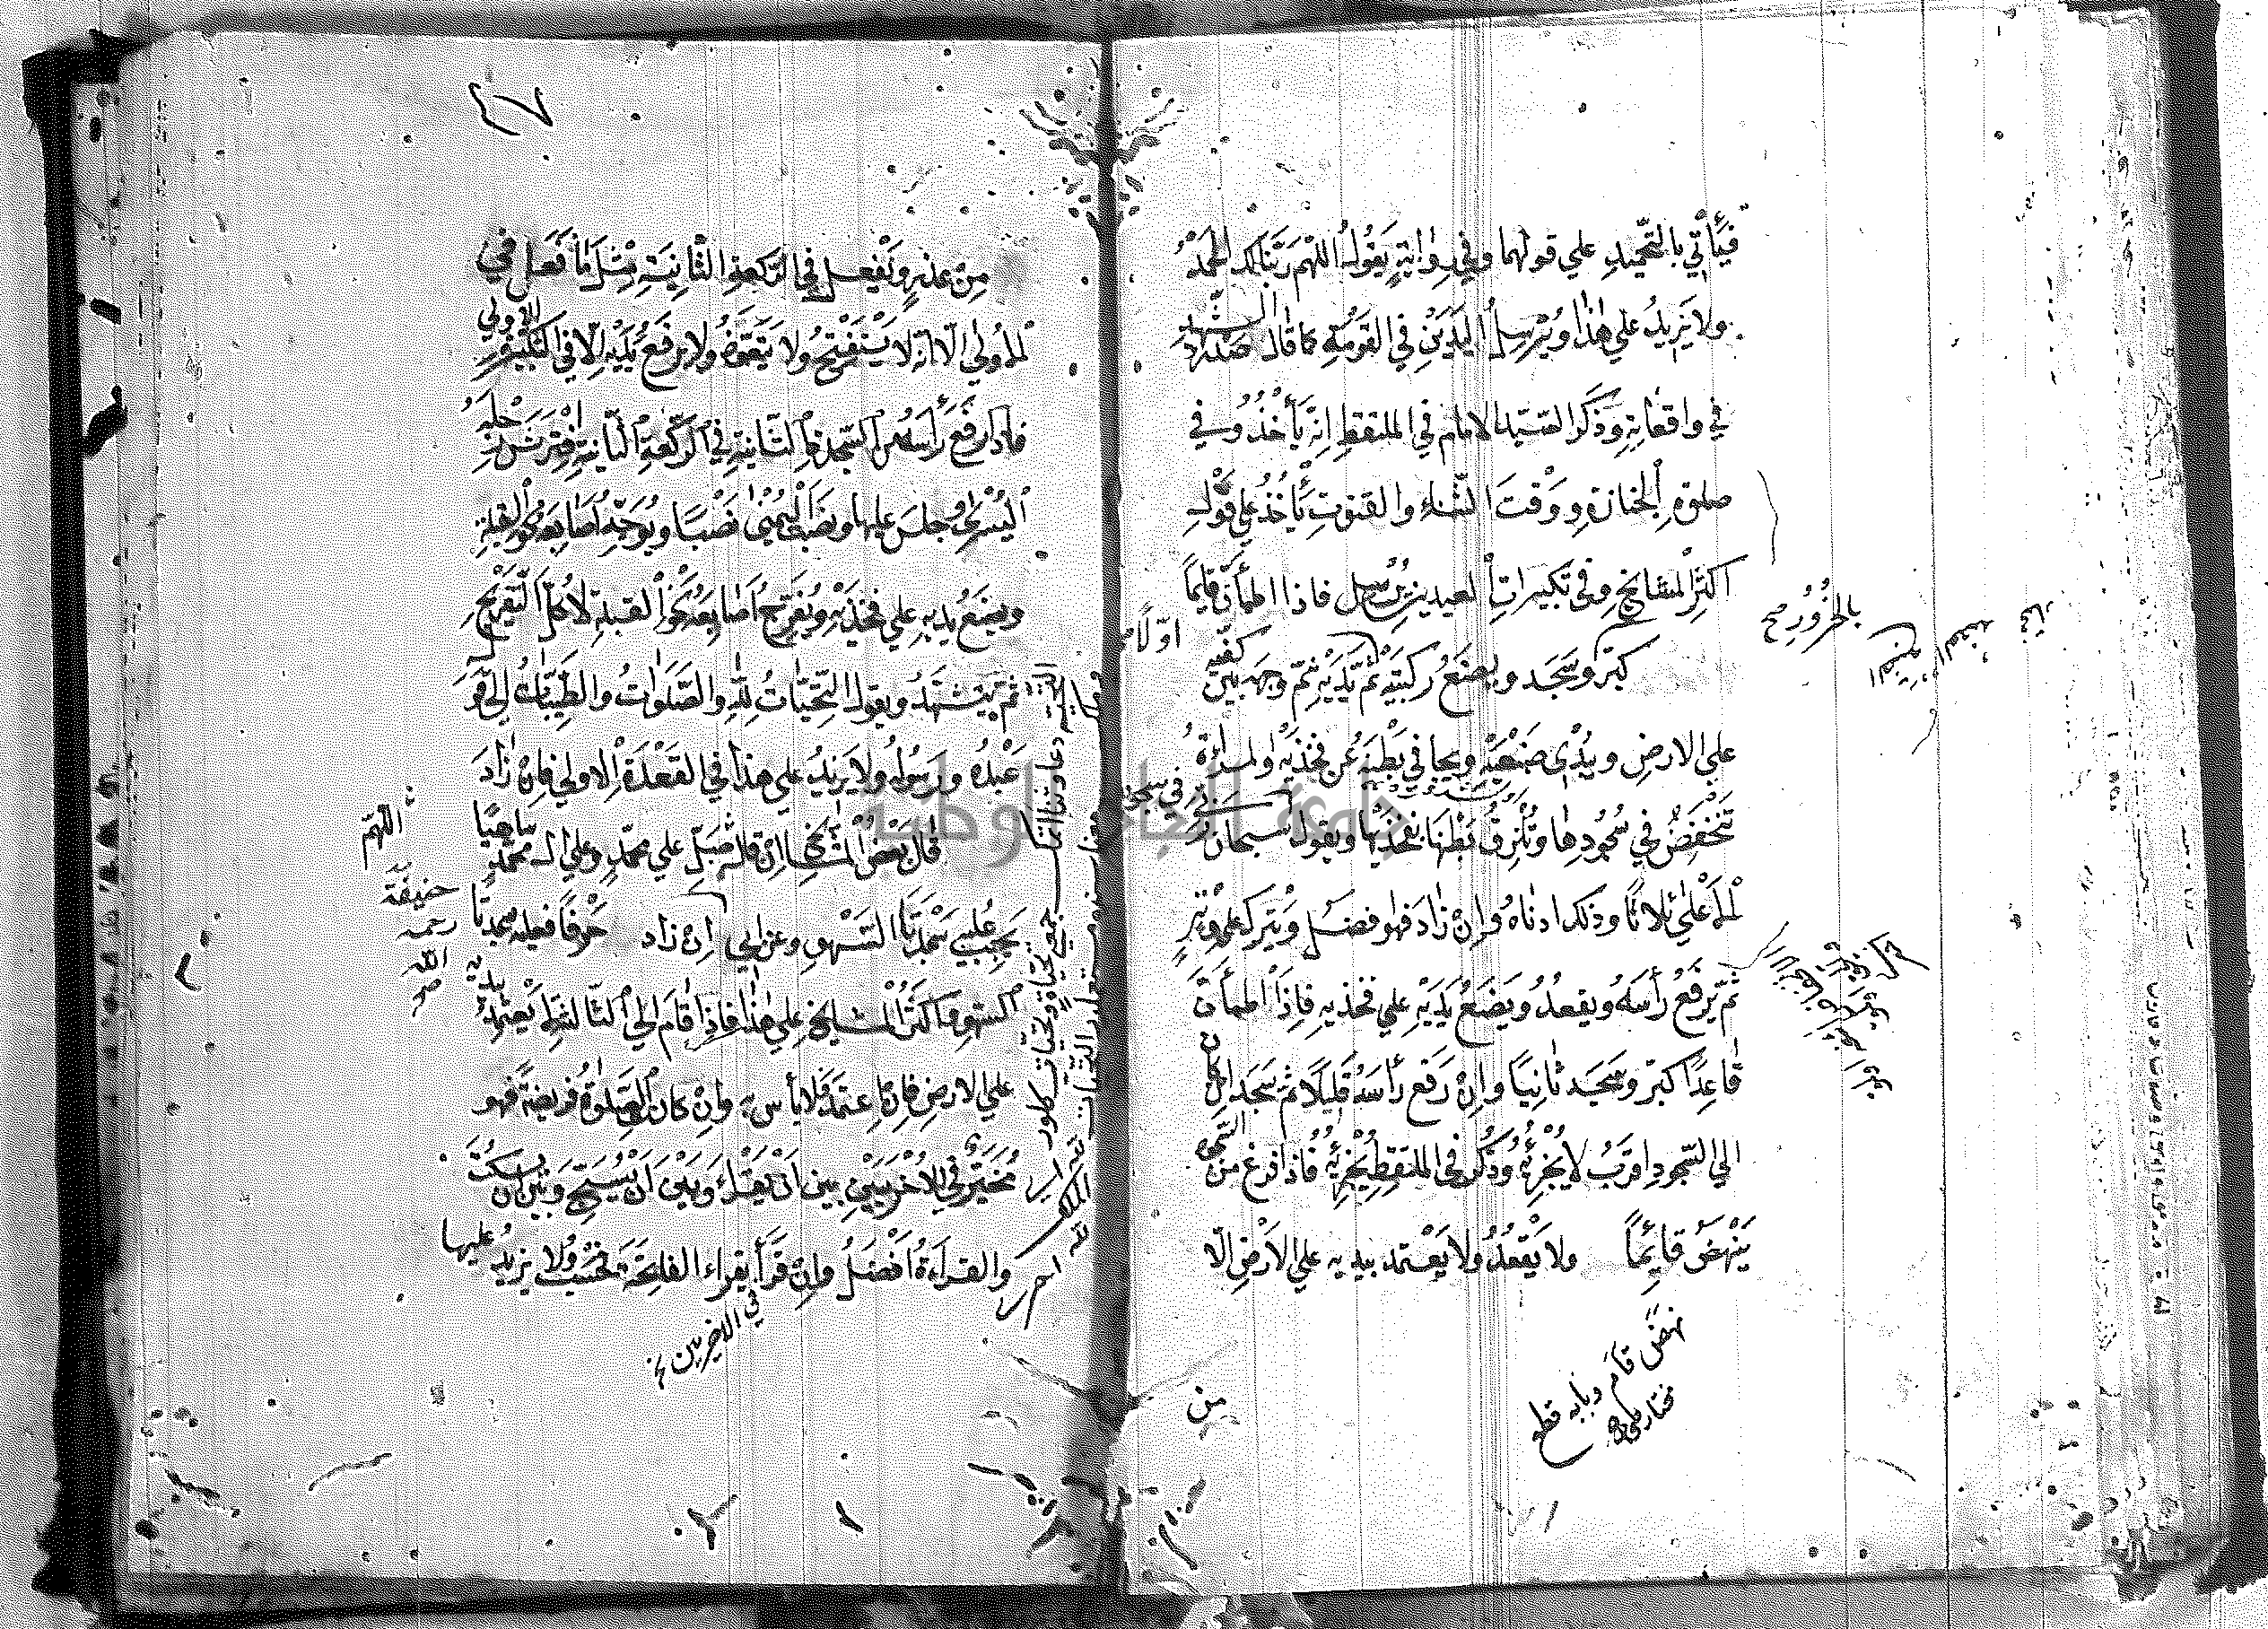 فيأتي بالتحميد علي قولهما وفي رواية يقول اللهم ربنا لك الحمد
ولا يزيد علي هذا ويرسل اليدين في القومة كما قال الشهيد
في واقعاته وذكر السيد الامام في الملتقط انه يأخذ وفي
صلوة الجنازة ووقت الثناء والقنوت يأخذ علي قول
اكثر المشايخ وفي تكبيرات العيدين يرسل فاذا اطمأن قايما
كبر وسجد ويضع ركبتيه ثم يديه ثم وجهه بين كفيه
علي الارض ويبدي ضبعيه ويجافي بطنه عن فخذيه والمرأة
تنخفض في سجودها وتلزق بطنها بفخذيها ويقول سبحان ربي
الاعلي ثلاثا وذلك ادناه وان زاد فهو فضل ويترك علي وتر
ثم يرفع رأسه ويقعد ويضع يديه علي فخذيه فاذا اطمأن
قاعدا كبر وسجد ثانيا وان رفع رأسه قليلا ثم سجد ان كان
الي السجود اقرب لا يجزئه وذكر في الملتقط يجزئه فاذا فرغ من
ينهض قائما ولا يقعد ولا يعتمد بيديه علي الارض الا
بالخرور صح
اولا
في سجوده
نهض قام وبابه قطع
مختار
من
من عذر ويفعل في الركعة الثانية مثل ما فعل في
الاولي الا انه لا يستفتح ولا يتعوذ ولا يرفع يديه الا في التكبيرة الاولي
فاذا رفع رأسه من السجدة الثانية في الركعة الثانية افترش رجله
اليسري وجلس عليها ونصب اليمني نصبا ويوجه اصابعه نحو القبلة
ويضع يديه علي فخذيه ويفرج اصابعه نحو القبلة لا كل التفريج
ثم يتشهد ويقول التحيات لله والصلوات والطيبات الي قوله
عبده ورسوله ولا يزيد علي هذا في القعدة الاولي فان زاد
قال بعض المشايخ ان قال صل علي محمد وعلي ال محمد ساهيا
يجب عليه سجدتا السهو وعن ابي ان زاد حرفا فعليه سجدتا
السهو واكثر المشايخ علي هذا فاذا قام الي الثالثة لا يعتمد بيديه
علي الارض فان اعتمد فلا بأس به وان كان الصلوة فريضة فهو
مخير في الاخريين بين ان يقراء وبين ان يسبح وبين ان يسكت
والقراءة افضل وان قرأ يقراء الفاتحة فحسب ولا يزيد عليها
اللهم
حنيفة
رحمه
الله
صح
في الاخريين
جامعة النجاح الوطنية